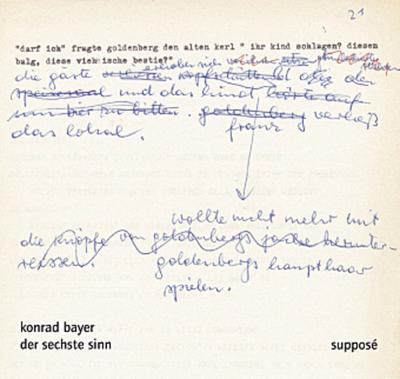 21
"darf ich" fragte goldenberg den alten kerl " ihr kind schlagen? diesen
balg, diese viehische bestie?"
die gäste
speisesaal und das kind hörte auf
ihn hier zu bitten. goldenberg verließ
das lokal. franz
wollte nicht mehr mit
die knöpfe von goldenbergs jacke herunter-
reissen. goldenbergs haupthaar
spielen.
konrad bayer
der sechste sinn
supposé